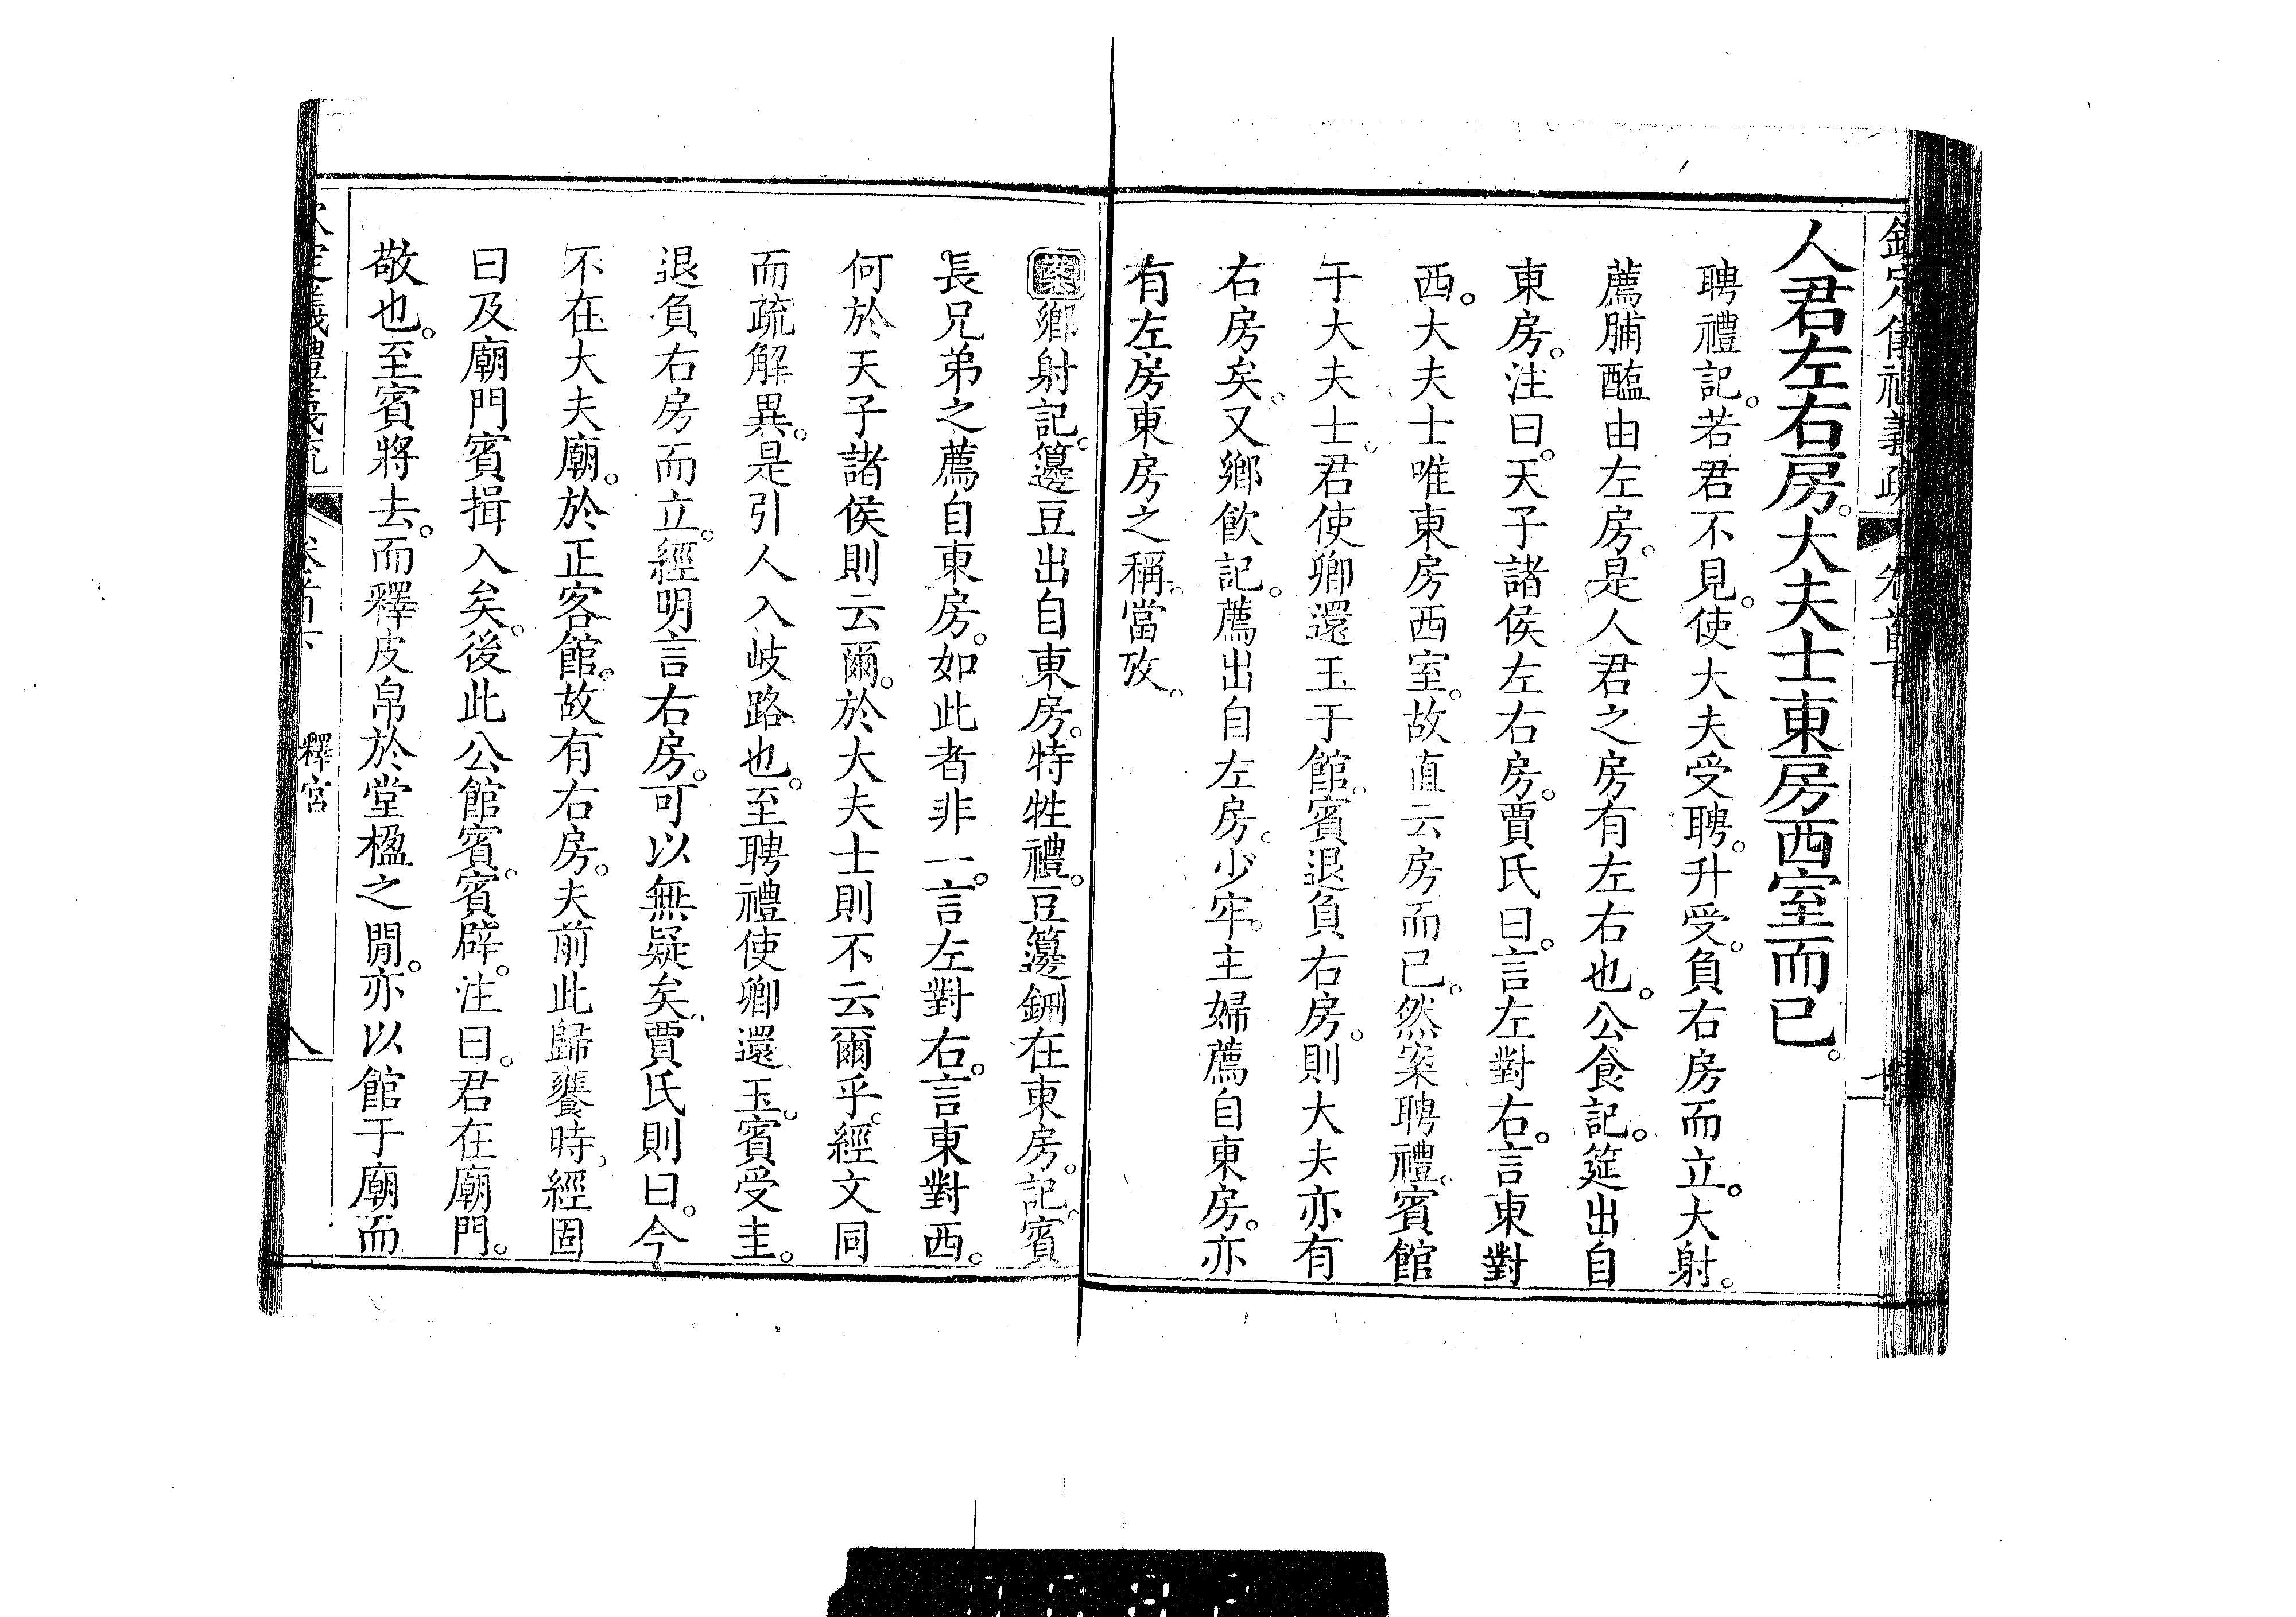 人君左右房。大夫士東房西室而已。
聘禮記。若君不見。使大夫受聘。升受。負右房而立。大射。
薦脯醢由左房。是人君之房有左右也。公食記。筵出自
東房。注曰。天子諸侯左右房。賈氏曰。言左對右。言東對
西。大夫士唯東房西室。故直云房而已。然案聘禮。賓館
于大夫士。君使卿還玉于館。賓退負右房。則大夫亦有
右房矣。又鄉飲記。薦出自左房。少牢。主婦薦自東房。亦
有左房東房之稱。當攷。
案鄉射記。籩豆出自東房。特牲禮。豆籩鉶在東房。記。賓
長兄弟之薦自東房。如此者非一。言左對右。言東對西。
何於天子諸侯則云爾。於大夫士則不云爾乎。經文同
而疏解異。是引人入岐路也。至聘禮使卿還玉。賓受圭。
退負右房而立。經明言右房。可以無疑矣。賈氏則曰。今
不在大夫廟。於正客館。故有右房。夫前此歸饔時。經固
曰及廟門賓揖入矣。後此公館賓。賓辟。注曰。君在廟門。
敬也。至賓將去。而釋皮帛於堂楹之閒。亦以館于廟而
釋宮
八